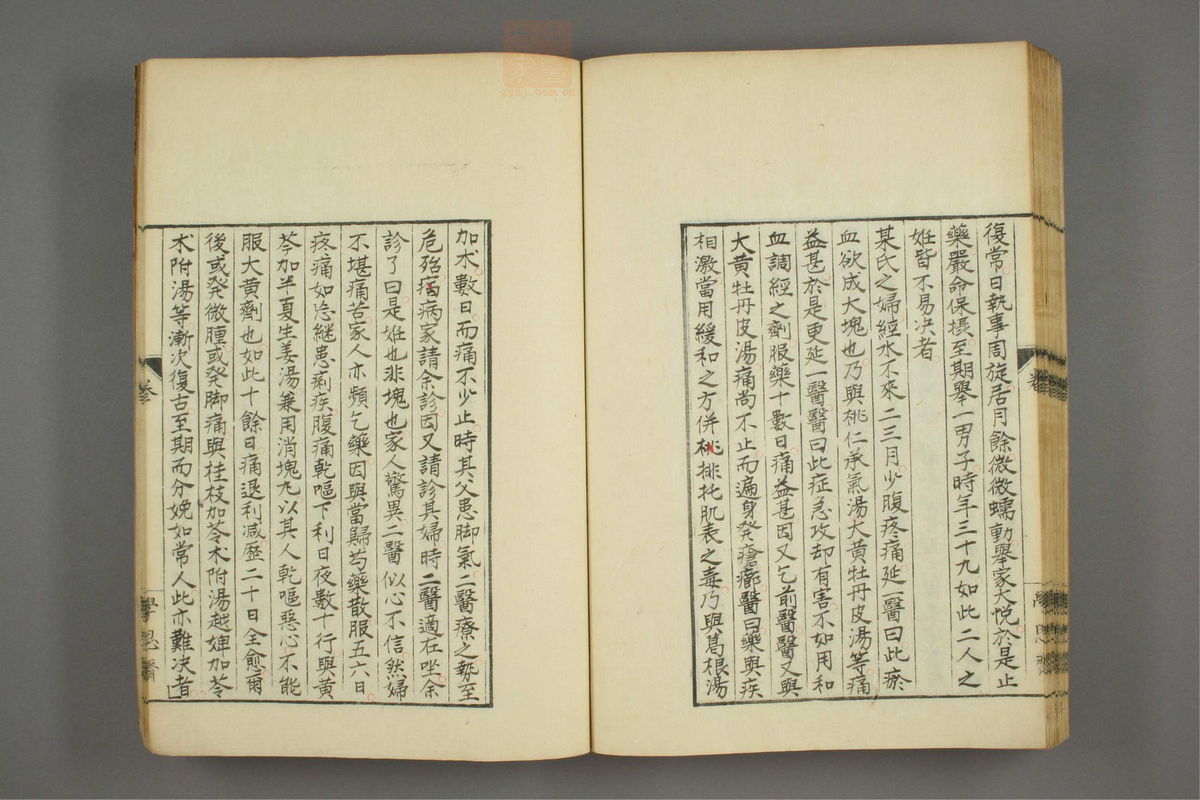 復常日執事周旋居月餘微微蠕動舉家大悅於是止
藥嚴命保攝至期舉一男子時年三十九如此二人之
姙皆不易决者
某氏之婦經水不來二三月少腹疼痛延一醫曰此瘀
血欲成大塊也乃與桃仁承氣湯大黃牡丹皮湯等痛
益甚於是更延一醫醫曰此症急攻却有害不如用和
血調經之劑服藥十數日痛益甚因又乞前醫醫又與
大黃牡丹皮湯痛尚不止而遍身発瘡癤醫曰藥與疾
相激當用緩和之方併桃排托肌表之毒乃與葛根湯
加术數日而痛不少止時其父患脚氣二醫療之勢至
危殆病病家請余診因又請診其婦時二醫適在坐余
診了曰是姙也非塊也家人驚異二醫似心不信然婦
不堪痛苦家人亦頻乞藥因與當歸芍藥散服五六日
疼痛如忘継患痢疾腹痛乾嘔下利日夜數十行與黃
芩加半夏生姜湯兼用消塊丸以其人乾嘔惡心不能
服大黃劑也如此十餘日痛退利减歷二十日全愈爾
後或発微腫或発脚痛與桂枝加苓术附湯越婢加苓
术附湯等漸次復古至期而分娩如常人此亦難决者
卷
學思齋